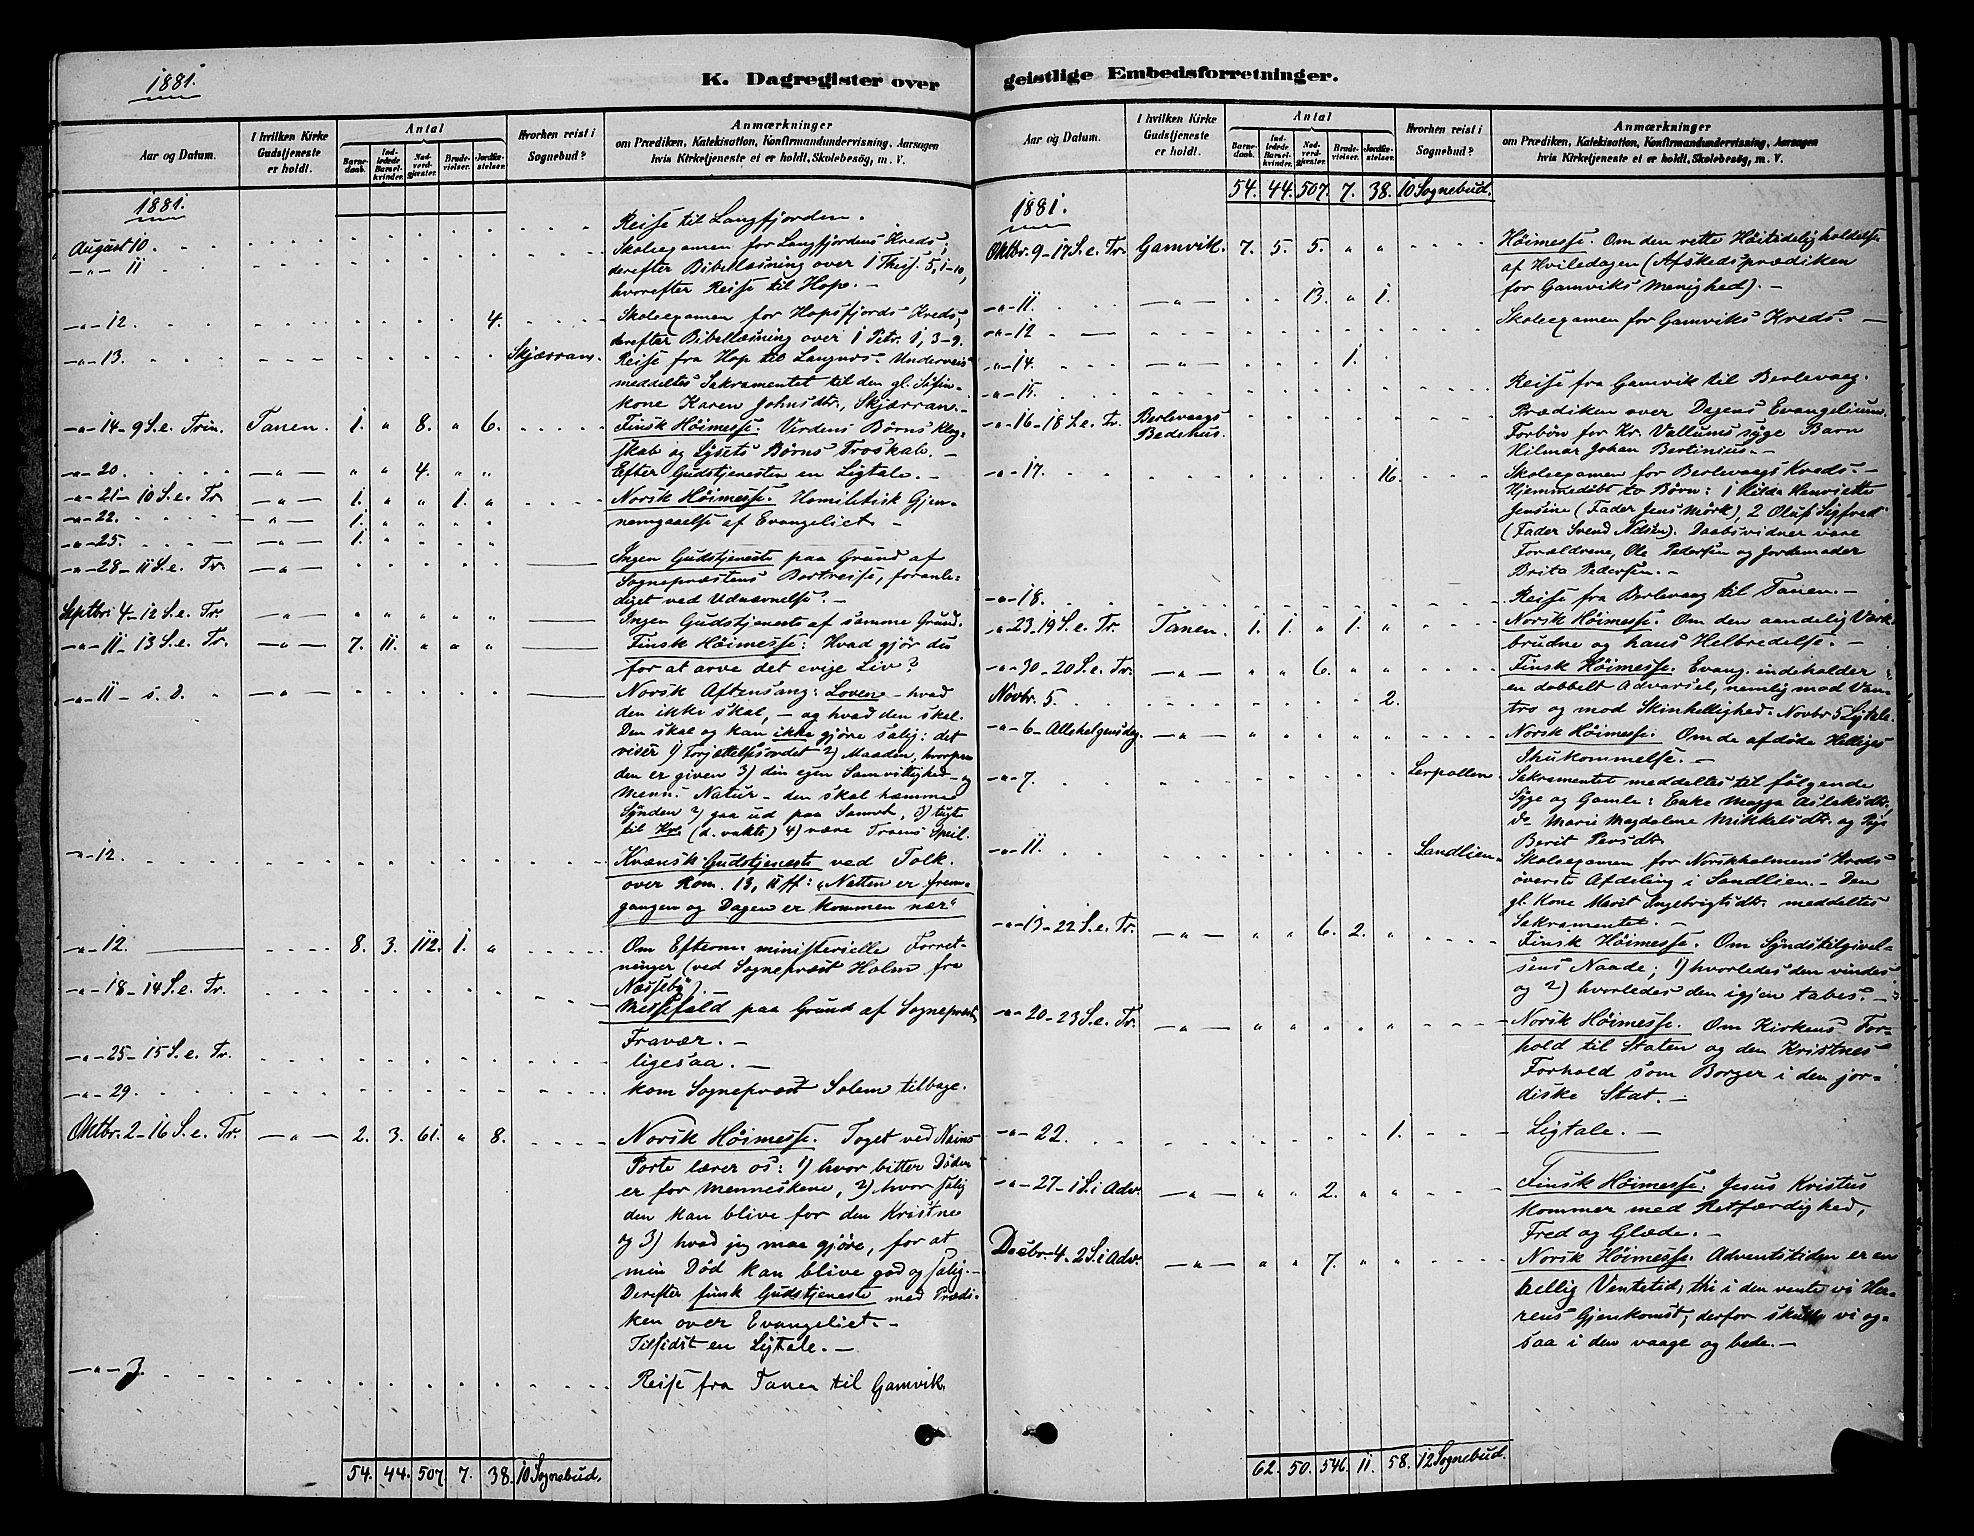 1881.
K. Dagregister over
Aar og Datum.
I hvilken Kirke Gudstjeneste er holdt.
Antal
Barnedaab.
Indledede Barselkvinder.
Nadverdgjester.
Brudevielser.
Jordfæstelser.
Hvorhen reist i Sognebud?
Anmærkninger
om Prædiken, Katekisation, Konfirmandundervisning, Aarsagen
hvis Kirketjeneste ei er holdt, Skolebesøg, m. V.
1881.
August 10. Reise til Langfjorden.
-"- 11 Skoleexamen for Langfjordens Kreds;
derefter Bibellæsning over 1 Thess. 5, 1-10,
hvorefter Reise til Hop. -
-"- 12. 4. Skoleexamen for Hopsfjords Kreds;
derefter Bibellæsning over 1 Petr. 1, 3-9.
-"- 13. Skjærran. Reise fra Hop til Langnes. Underveis
meddeltes Sakramentet til den gl.
kone Karen Johnsdtr., Skjærran. -
-"- 14 - 9 S. e. Trin. Tanen. 1. " 8. " 6. Finsk Høimesse. Verdens Børns Klog-
skab og Lysets Børns Troskab. -
-"- 20. -"- " " 4. " " Efter Gudstjenesten en Ligtale. -
-"- 21 - 10 S. e. Tr. -"- 1. " " 1. " Norsk Høimesse. Homiletisk Gjen-
-"- 22. -"- 1. " " " " nemgaaelse af Evangeliet. -
-"- 25. -"- 1. " " " "
-"- 28 - 11 S. e. Tr. -"- Ingen Gudstjeneste paa Grund af
Sognepræstens Bortreise, foranle-
diget ved Udnævnelse. -
Septbr. 4 - 12 S. e. Tr. -"- " " " " " Ingen Gudstjeneste af samme Grund.
-"- 11 - 13 S. e. Tr. -"- 7. 11. " " " Finsk Høimesse: Hvad gjør du
for at arve det evige Liv?
-"- 11 - s. D. -"- Norsk Aftensang: Loven - hvad
den ikke skal, - og hvad den skal.
Den skal og kan ikke gjøre salig: det
viser 1) Forjættelsesordet 2) Maaden, hvorpaa
den er given 3) din egen Samvittighed - og
Menn. Natur - den skal hæmme
Synden 2) gaa ud paa Samvt., 3) tugte
til Kr. (d. vakte) 4) være Troens Speil.
-"- 12. Kvænsk Gudstjeneste ved Tolk.
over Rom. 13, 11 ff: "Natten er frem-
gangen og Dagen er kommen nær"
-"- 12. 8. 3. 112. 1. " Om Efterm. ministerielle Forret-
ninger (ved Sognepræst Holm fra
Næsseby).
-"- 18 - 14 S. e. Tr. Messefald paa Grund af Sognepræst.
Fravær. -
-"- 25 - 15 S. e. Tr. ligesaa. -
-"- 29. kom Sognepræst Solem tilbage.
Oktbr. 2 - 16 S. e. Tr. -"- 2. 3. 61. " 8. Norsk Høimesse. Toget ved Nains
Porte lærer os: 1) hvor bitter Døden
er for Menneskene, 2) hvor salig
den kan blive for den Kristne
og 3) hvad jeg maa gjøre, for at
min Død kan blive god og salig. -
Derefter finsk Gudstjeneste med Prædi-
ken over Evangeliet. -
Tilsidst en Ligtale. -
-"- 3. Reise fra Tanen til Gamvik.
54. 44. 507. 7. 38. 10 Sognebud.
geistlige Embedsforretninger.
Aar og Datum.
I hvilken Kirke Gudstjeneste er holdt.
Antal
Barnedaab.
Indledede Barselkvinder.
Nadverdgjester.
Brudevielser.
Jordfæstelser.
Hvorhen reist i Sognebud?
Anmærkninger
om Prædiken, Katekisation, Konfirmandundervisning, Aarsagen
hvis Kirketjeneste ei er holdt, Skolebesøg, m. V.
54. 44. 507. 7. 38. 10 Sognebud.
1881.
Oktbr. 9 - 17 S. e. Tr. Gamvik. 7. 5. 5. " " Høimesse. Om den rette Høitideligholdelse
af Hviledagen (Afskedsprædiken
for Gamviks Menighed). -
-"- 11. -"- 13. " 1.
-"- 12 Skoleexamen for Gamviks Kreds. -
-"- 14. -"- 1.
-"- 15. Reise fra Gamvik til Berlevaag.
-"- 16 - 18 S. e. Tr. Berlevaags Bedehus. Prædiken over Dagens Evangelium.
Forbøn for Kr. Vallums syge Barn
Hilmar Johan Bertinius. -
-"- 17. 16. Skoleexamen for Berlevaags Kreds. -
Hjemmedøbt to Børn: 1 Hilda Henriette
Jensine (Fader Jens Mørk), 2 Oluf Sigfred
(Fader Svend Nilsen). Daabsvidner vare
Forældrene, Ole Pedersen og Jordemoder
Brita Pedersen. -
-"- 18. Reise fra Berlevaag til Tanen. -
-"- 23 - 19 S. e. Tr. Tanen. 1. 1. " 1. " Norsk Høimesse. Om den aandelig Værk-
brudne og hans Helbredelse. -
-"- 30 - 20 S. e. Tr. -"- " " 6. " " Finsk Høimesse. Evang. indeholder
en dobbelt Advarsel, nemlig mod Van-
tro og mod Skinhellighed. Novbr 5 Ligtale.
Novbr. 5. 2.
-"- 6 - Allehelgensdg. -"- Norsk Høimesse. Om de afdøde Helliges
Ihukommelse. -
-"- 7. Lerpollen. Sakramentet meddeltes til følgende
Syge og Gamle: Enke Magga Aslaksdtr.,
do Marie Magdalene Mikkelsdtr. og Pige
Berit Persdtr.
-"- 11. Sandlien. Skoleexamen for Norskholmens Kreds
øverste Afdeling i Sandlien. - Den
gl. Kone Marit Ingebrigtsdtr. meddeltes
Sakramentet. -
-"- 13 - 22 S. e. Tr. -"- " " 6. 2. " Finsk Høimesse. Om Syndstilgivel-
sens Naade; 1) hvorledes den vindes
og 2) hvorledes den igjen tabes. -
-"- 20 - 23 S. e. Tr. -"- " " " " " Norsk Høimesse. Om Kirkens For-
hold til Staten og den Kristnes
Forhold som Borger i den jor-
diske Stat. -
-"- 22. 1. Ligtale. -
-"- 27 - 1 S. i Adv. -"- " " 2. " " Finsk Høimesse. Jesus Kristus
kommer med Retfærdighed,
Fred og Glæde. -
Decbr. 4 - 2 S. i Adv. -"- " " 7. " " Norsk Høimesse. Adventstiden er en
hellig Ventetid; thi i den vente vi Her-
rens Gjenkomst; derfor skulle vi og-
saa i den vaage og bede. -
62. 50. 546. 11. 58. 12 Sognebud.